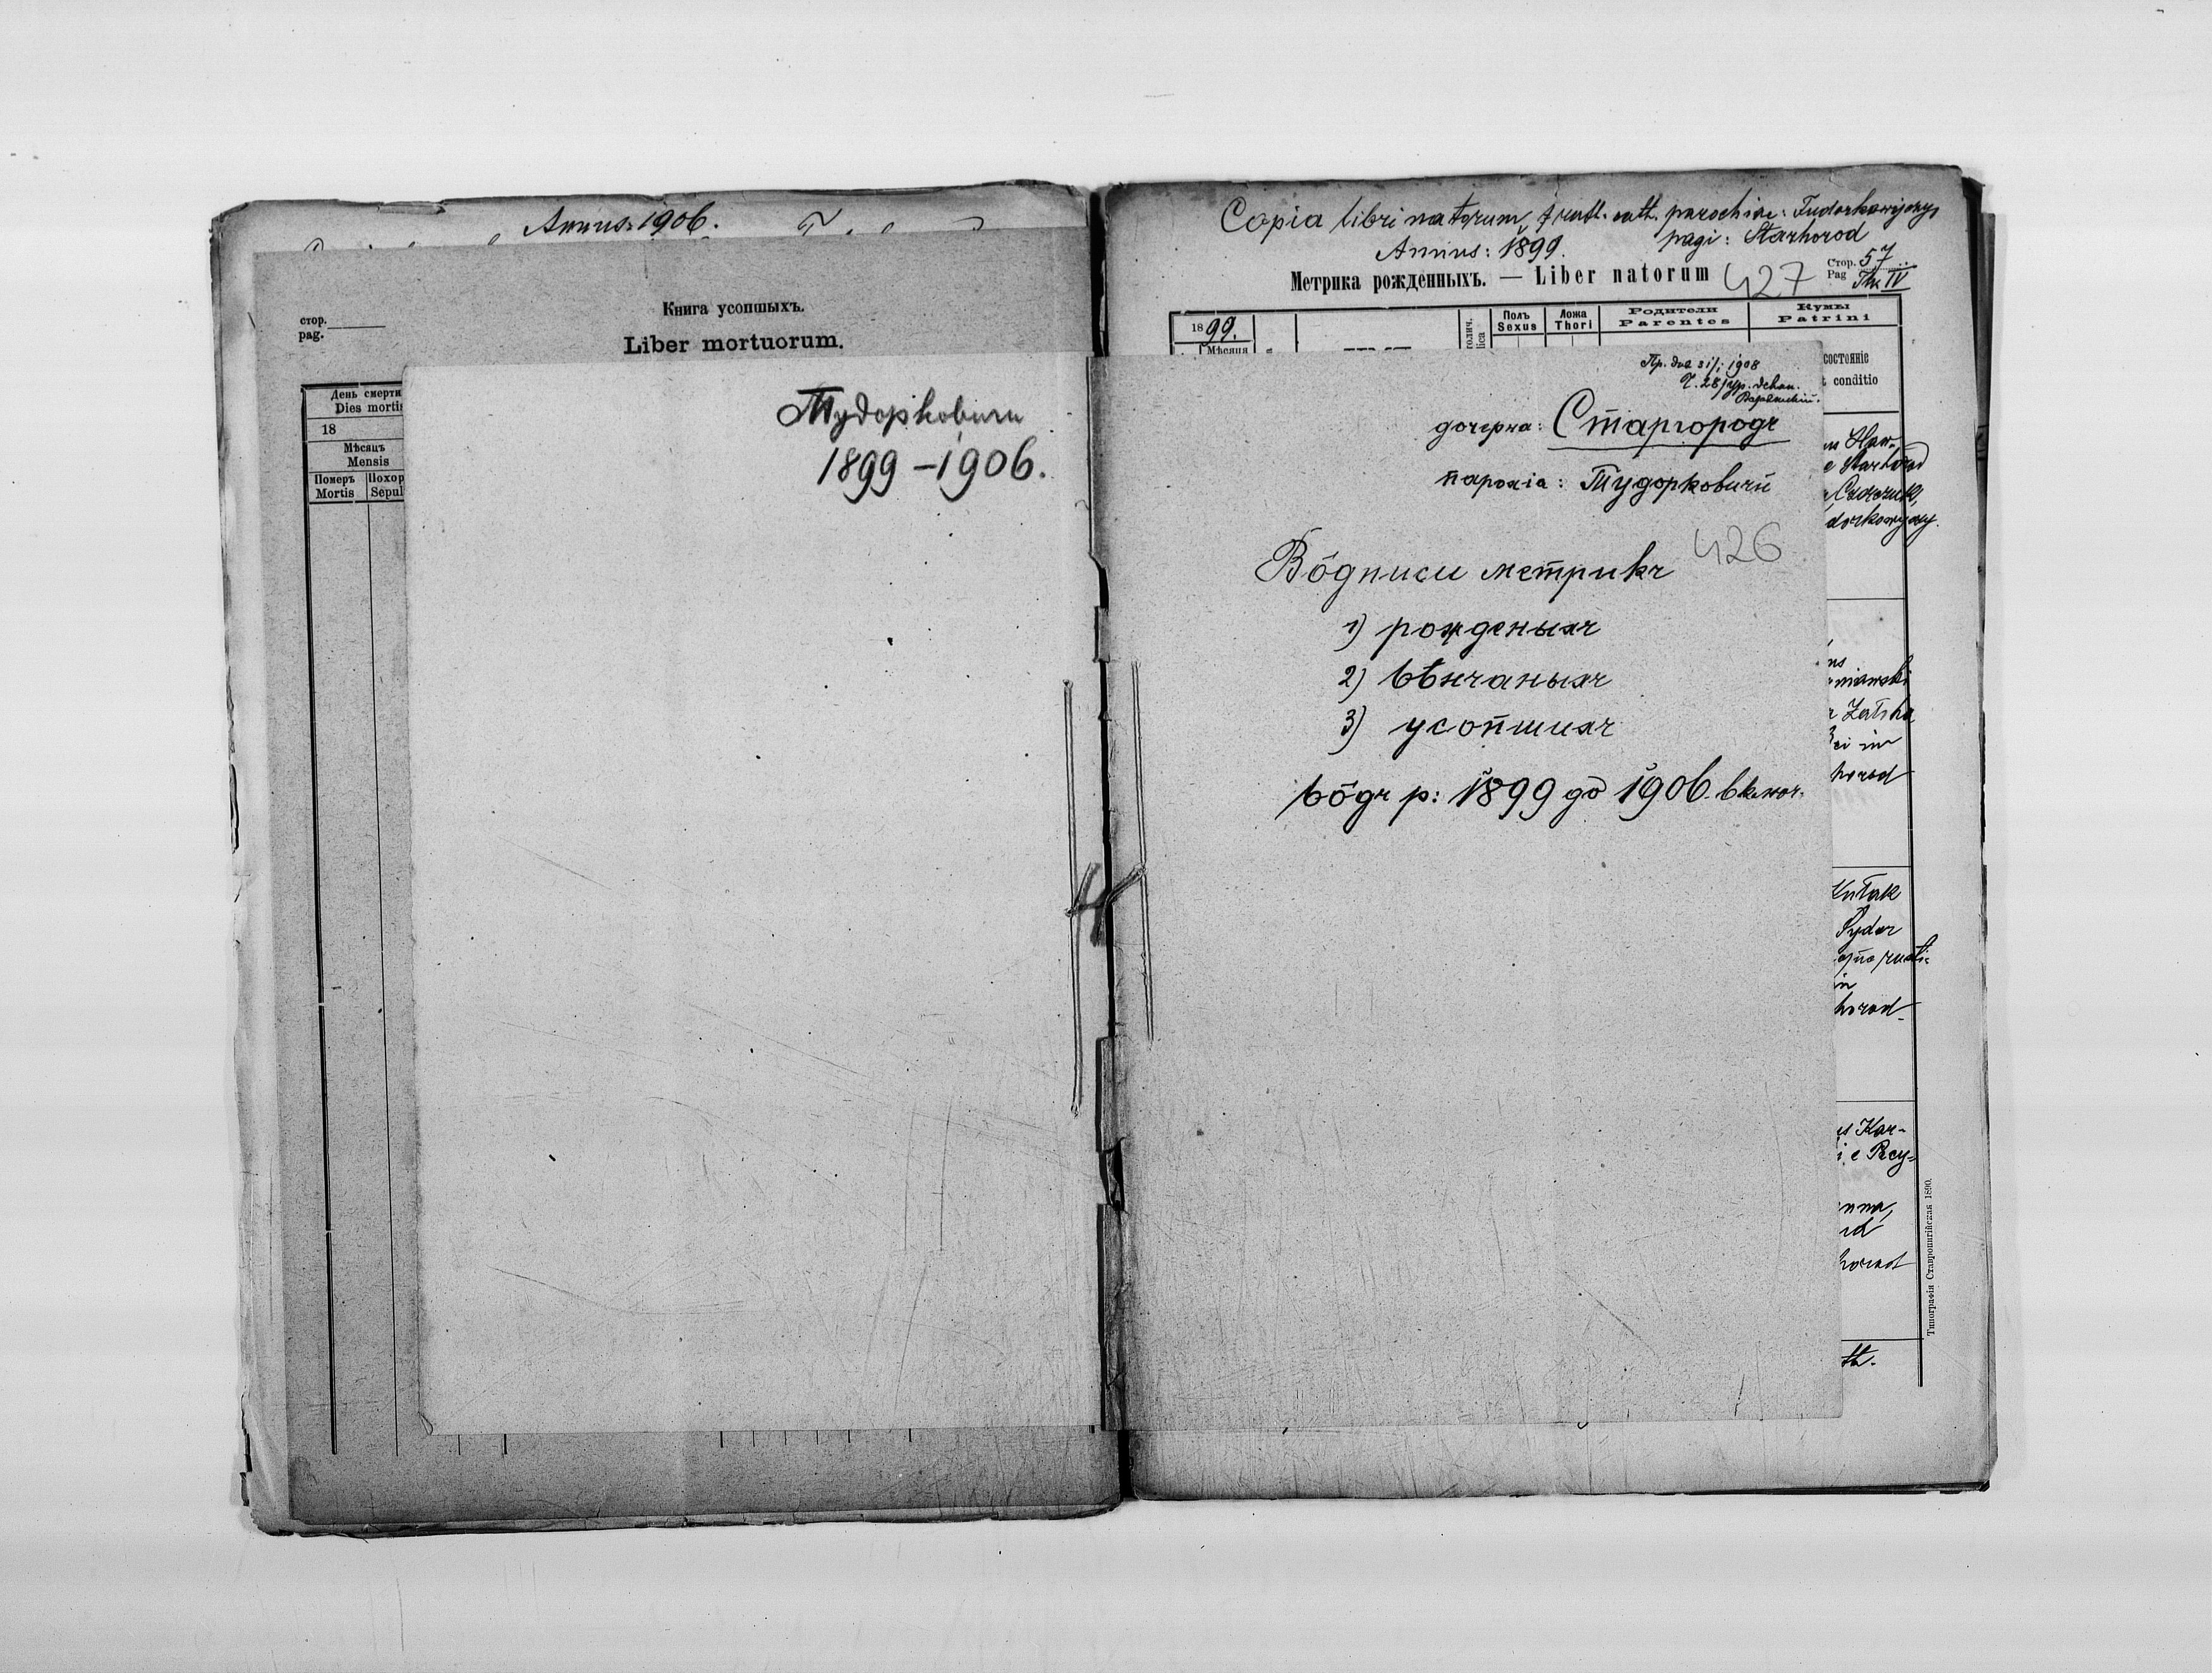 Annus: 1906.
Книга усопшыхъ.
стор.
pag.
Liber mortuorum.
День смерти
Dies mortis
18
Мѣсяцъ
Mensis
Померъ Похор
Mortis Sepul
Тудорковичи
1899 – 1906.
Copia libri natorum, gr. cath. parochiae: Tudorkowyczy
Annus: 1899. pagi: Starhorod
Метрика рожденныхъ. — Liber natorum 427
Стор. 57
Pag Thr IV
1899.
Мѣсяца
Полъ
Sexus
Ложа
Thori
Родители
Parentes
Кумы
Patrini
состоянiе
conditio
Пр. дня 31/1 1908
Ч. 28/ур. декан.
дочерна: Старгородъ
парохіа: Тудорковичи
426
Вôдписи метрикъ
1) рожденыхъ
2) вѣнчаныхъ
3) усопшихъ
вôдъ р: 1899 до 1906. включ.
e Starhorod
dorkowyczy.
niawski
horod
Kutak
Sydor
in
horod
Kar-
horod
Типографія Ставропигійская 1890.